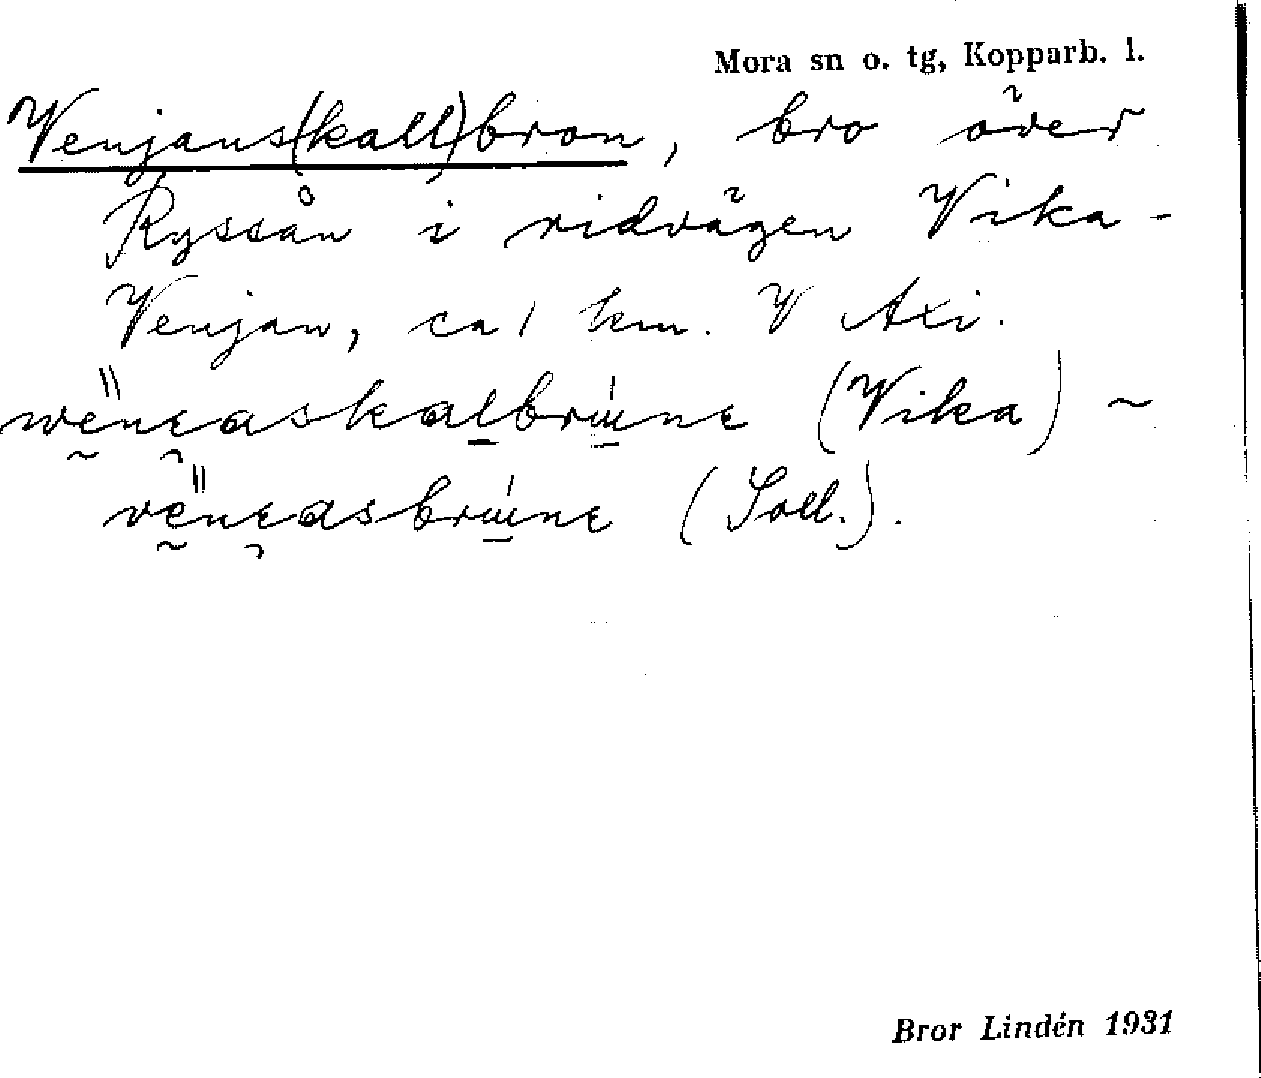 Mora sn o. tg, Kopparb. l.
Venjans(kall)bron, bro över
Ryssån i ridvägen Vika-
Venjan, ca 1 km. V Axi.
(Vika) ~
(Soll.).
Bror Lindén 1931